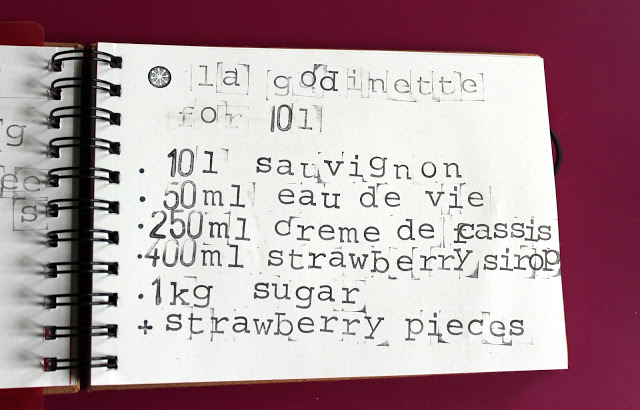 la godinette
for 10l
· 10l sauvignon
· 50ml eau de vie
· 250ml creme de cassis
· 400ml strawberry sirop
· 1kg sugar
+ strawberry pieces
g
ee
s